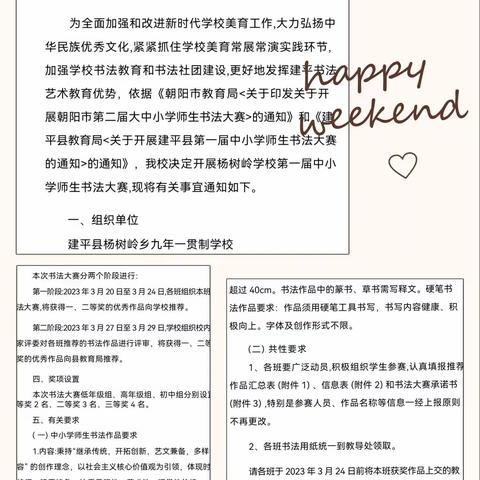 为全面加强和改进新时代学校美育工作,大力弘扬中
华民族优秀文化,紧紧抓住学校美育常展常演实践环节,
加强学校书法教育和书法社团建设,更好地发挥建平书法
艺术教育优势，依据《朝阳市教育局<关于印发关于开
展朝阳市第二届大中小学师生书法大赛>的通知》和《建
平县教育局<关于开展建平县第一届中小学师生书法大赛
的通知>的通知》，我校决定开展杨树岭学校第一届中小
学师生书法大赛,现将有关事宜通知如下。
一、组织单位
建平县杨树岭乡九年一贯制学校
happy
weekend
本次书法大赛分两个阶段进行:
第一阶段:2023 年 3 月 20 日至 3 月 24 日,各班组织本班
法大赛,将获得一、二等奖的优秀作品向学校推荐。
第二阶段:2023 年 3 月 27 日至 3 月 29 日,学校组织校内
家评委对各班推荐的书法作品进行评审，将获得一、二等
奖的优秀作品向县教育局推荐。
四、奖项设置
本次书法大赛低年级组、高年级组、初中组分别设
等奖 2 名、二等奖 3 名、三等奖 4 名。
五、有关要求
(一) 中小学师生书法作品要求
1.内容:秉持"继承传统，开拓创新，艺文兼备，多样
容" 的创作理念，以社会主义核心价值观为引领，体现时
超过 40cm。书法作品中的篆书、草书需写释文。硬笔书
法作品要求：作品须用硬笔工具书写，书写内容健康、积
极向上。字体及创作形式不限。
(二) 共性要求
1、各班要广泛动员,积极组织学生参赛,认真填报推荐
作品汇总表 (附件 1) 、信息表 (附件 2) 和书法大赛承诺书
(附件 3) ,特别是参赛人员、作品名称等信息一经上报原则
不再更改。
2、各班书法用纸统一到教导处领取。
请各班于 2023 年 3 月 24 日前将本班获奖作品上交的教